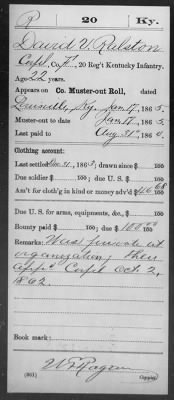 R 20 Ky.
David V. Ralston
Capt., Co. , 20 Reg't Kentucky Infantry.
Age 22 years.
Appears on Co. Muster-out Roll, dated
Louisville, Ky. Jan 17, 1865.
Muster-out to date Jan 17, 1865.
Last paid to Aug 31, 186 .
Clothing account:
Last settled Dec 31, 1863; drawn since $ 100
Due soldier $ 100; due U.S. $ 100
Am't for cloth'g in kind or money adv'd $ 46 68/100
Due U.S. for arms, equipments, &c., $ 100
Bounty paid $ 100; due $ 100 00/100
Remarks: Was private at
organization; then
app't Capt Oct. 2,
1862.
Book mark:
Ragan
(361) Copyist.